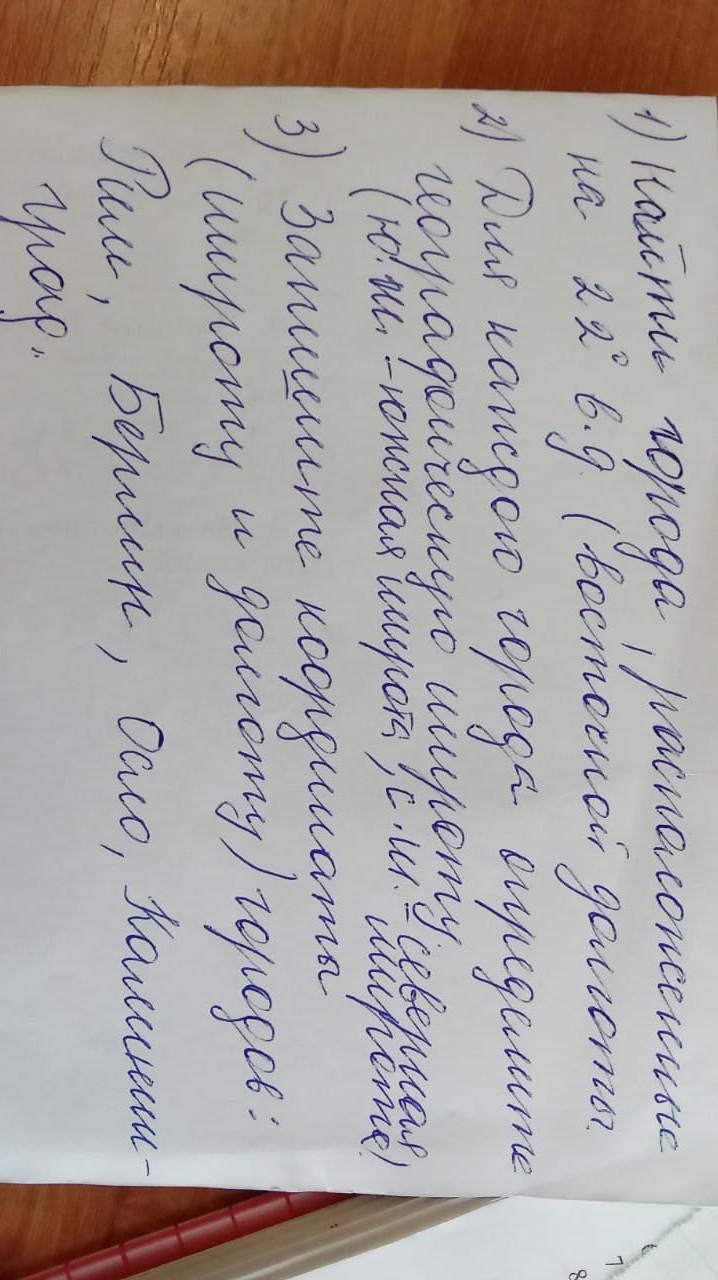 1) Найти города, расположенные
на 22° в.д. (восточной долготы.
2) Для каждого города определите
географическую широту
(ю.ш. - южная широта, с.ш. - северная
широта)
3) Запишите координаты
(широту и долготу) городов:
Рим, Берлин, Осло, Калинин-
град.
6
7
8